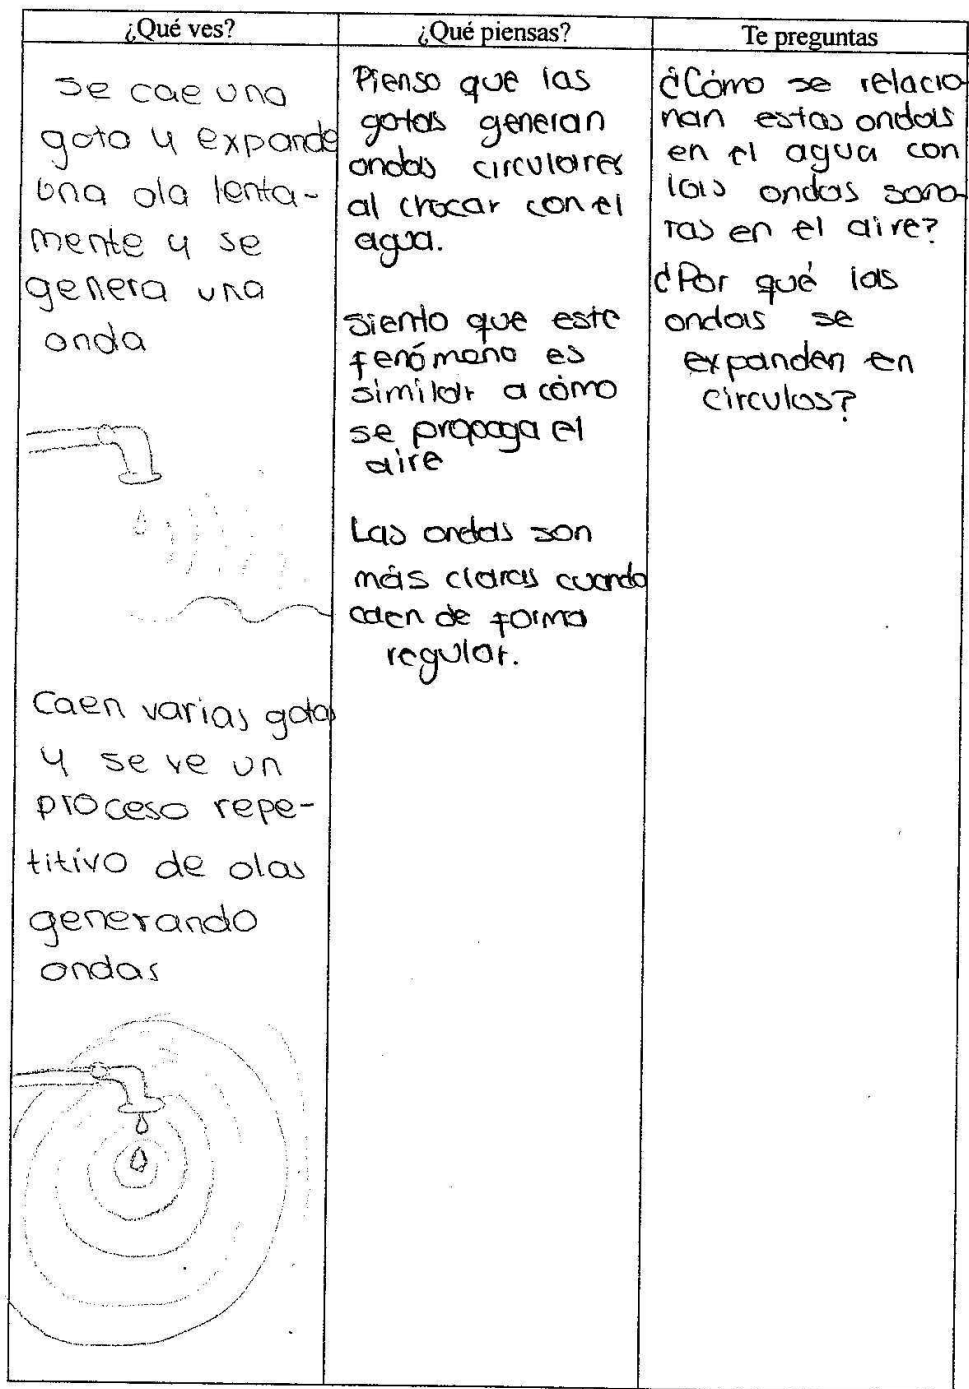 ¿Qué ves?
se cae una
gota y expande
una ola lenta-
mente y se
genera una
onda
Caen varias gotas
y se ve un
proceso repe-
titivo de olas
generando
ondas
¿Qué piensas?
Pienso que las
gotas generan
ondas circulares
al chocar con el
agua.
siento que este
fenómeno es
similar a cómo
se propaga el
aire
Las ondas son
más claras cuando
caen de forma
regular.
Te preguntas
¿Cómo se relacio
nan estas ondas
en el agua con
las ondas sono
ras en el aire?
¿Por qué las
ondas se
expanden en
círculos?